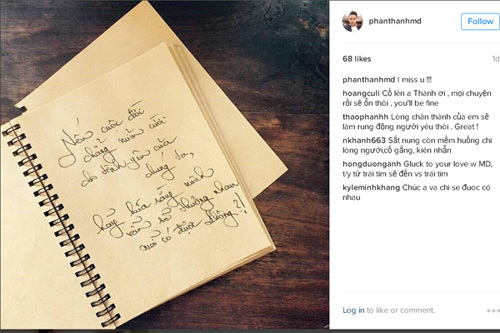 Nếu cuộc đời
chẳng mỉm cười
cho tình yêu của
chúng ta,
hãy hứa rằng mình
vẫn sẽ không nhau
có được không?!
phanthanhmd
Follow
68 likes
1d
phanthanhmd I miss u !!!
hoangculi Cố lên a Thành ơi , mọi chuyện
rồi sẽ ổn thôi , you'll be fine
thaophanhh Lòng chân thành của em sẽ
làm rung động người yêu thôi , Great !
nkhanh663 Sắt nung còn mềm huống chi
lòng người,cố gắng, kiên nhẫn
hongduonganh Gluck to your love w MD,
t/y từ trái tim sẽ đến vs trái tim
kyleminhkhang Chúc a va chi se đuoc có
nhau
Log in to like or comment.